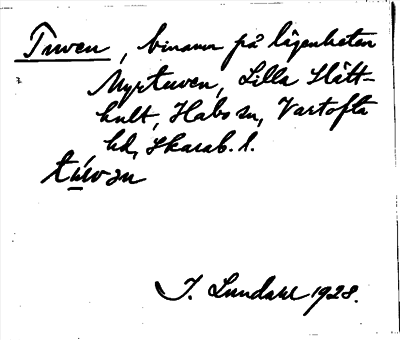 Tuven, binamn på lägenheten
Myrtuven, Lilla Slätt-
hult, Habo sn, Vartofta
hd, Skarab. l.
tu̇vən
I. Lundahl 1928.